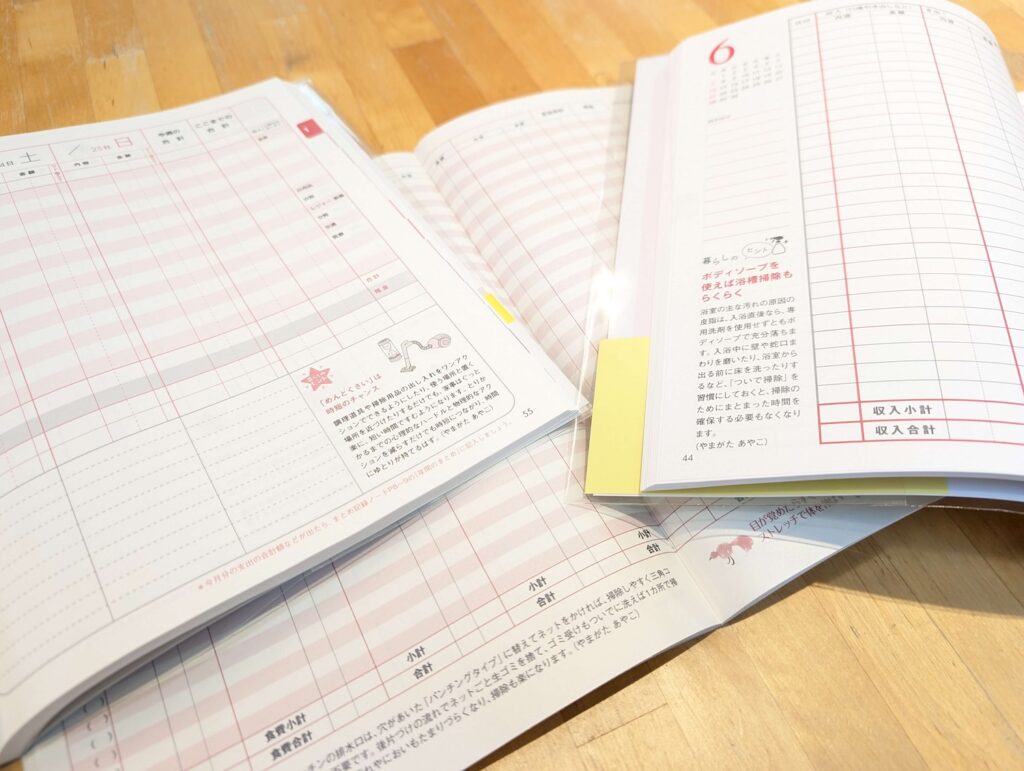 土
/
25日
日
今週の
合計
ここまでの
合計
金額
内容
金額
合計
残金
「めんどくさい」は
時短のチャンス
調理道具や掃除用品の出し入れをワンアク
ションでできるようにしたり、使う場所と置く
場所を近づけたりするだけでも、家事はぐっと
楽に、短い時間ですむようになります。とりか
かるまでの心理的なハードルと物理的なアク
ションを減らすだけでも時短につながり、時間
にゆとりが持てるはず。(やまがた あやこ)
55
*今月分の支出の合計額などが出たら、まとめ記録ノートP8~9の「年間のまとめ」に記入しましょう。
6
内容
金額
暮らしの
ヒント
ボディソープを
使えば浴槽掃除も
らくらく
浴室の主な汚れの原因の
皮脂は、入浴直後なら、専
用洗剤を使用せずともボ
ディソープで充分落ちま
す。入浴中に壁や蛇口ま
わりを磨いたり、浴室から
出る前に床を洗ったりす
るなど、「ついで掃除」を
習慣にしておくと、掃除の
ためにまとまった時間を
確保する必要もなくなり
ます。
(やまがた あやこ)
44
収入小計
収入合計
目が覚めたら
ストレッチで体を
小計
合計
小計
合計
小計
合計
食費小計
食費合計
チンの排水口は、穴があいた「パンチングタイプ」に替えてネットをかければ、掃除しやすく三角コ
不要です。後片づけの流れでネットごと生ゴミを捨て、ゴミ受けもついでに洗えば1カ所で掃
れやにおいもたまりづらくなり、掃除も楽になります。(やまがた あやこ)